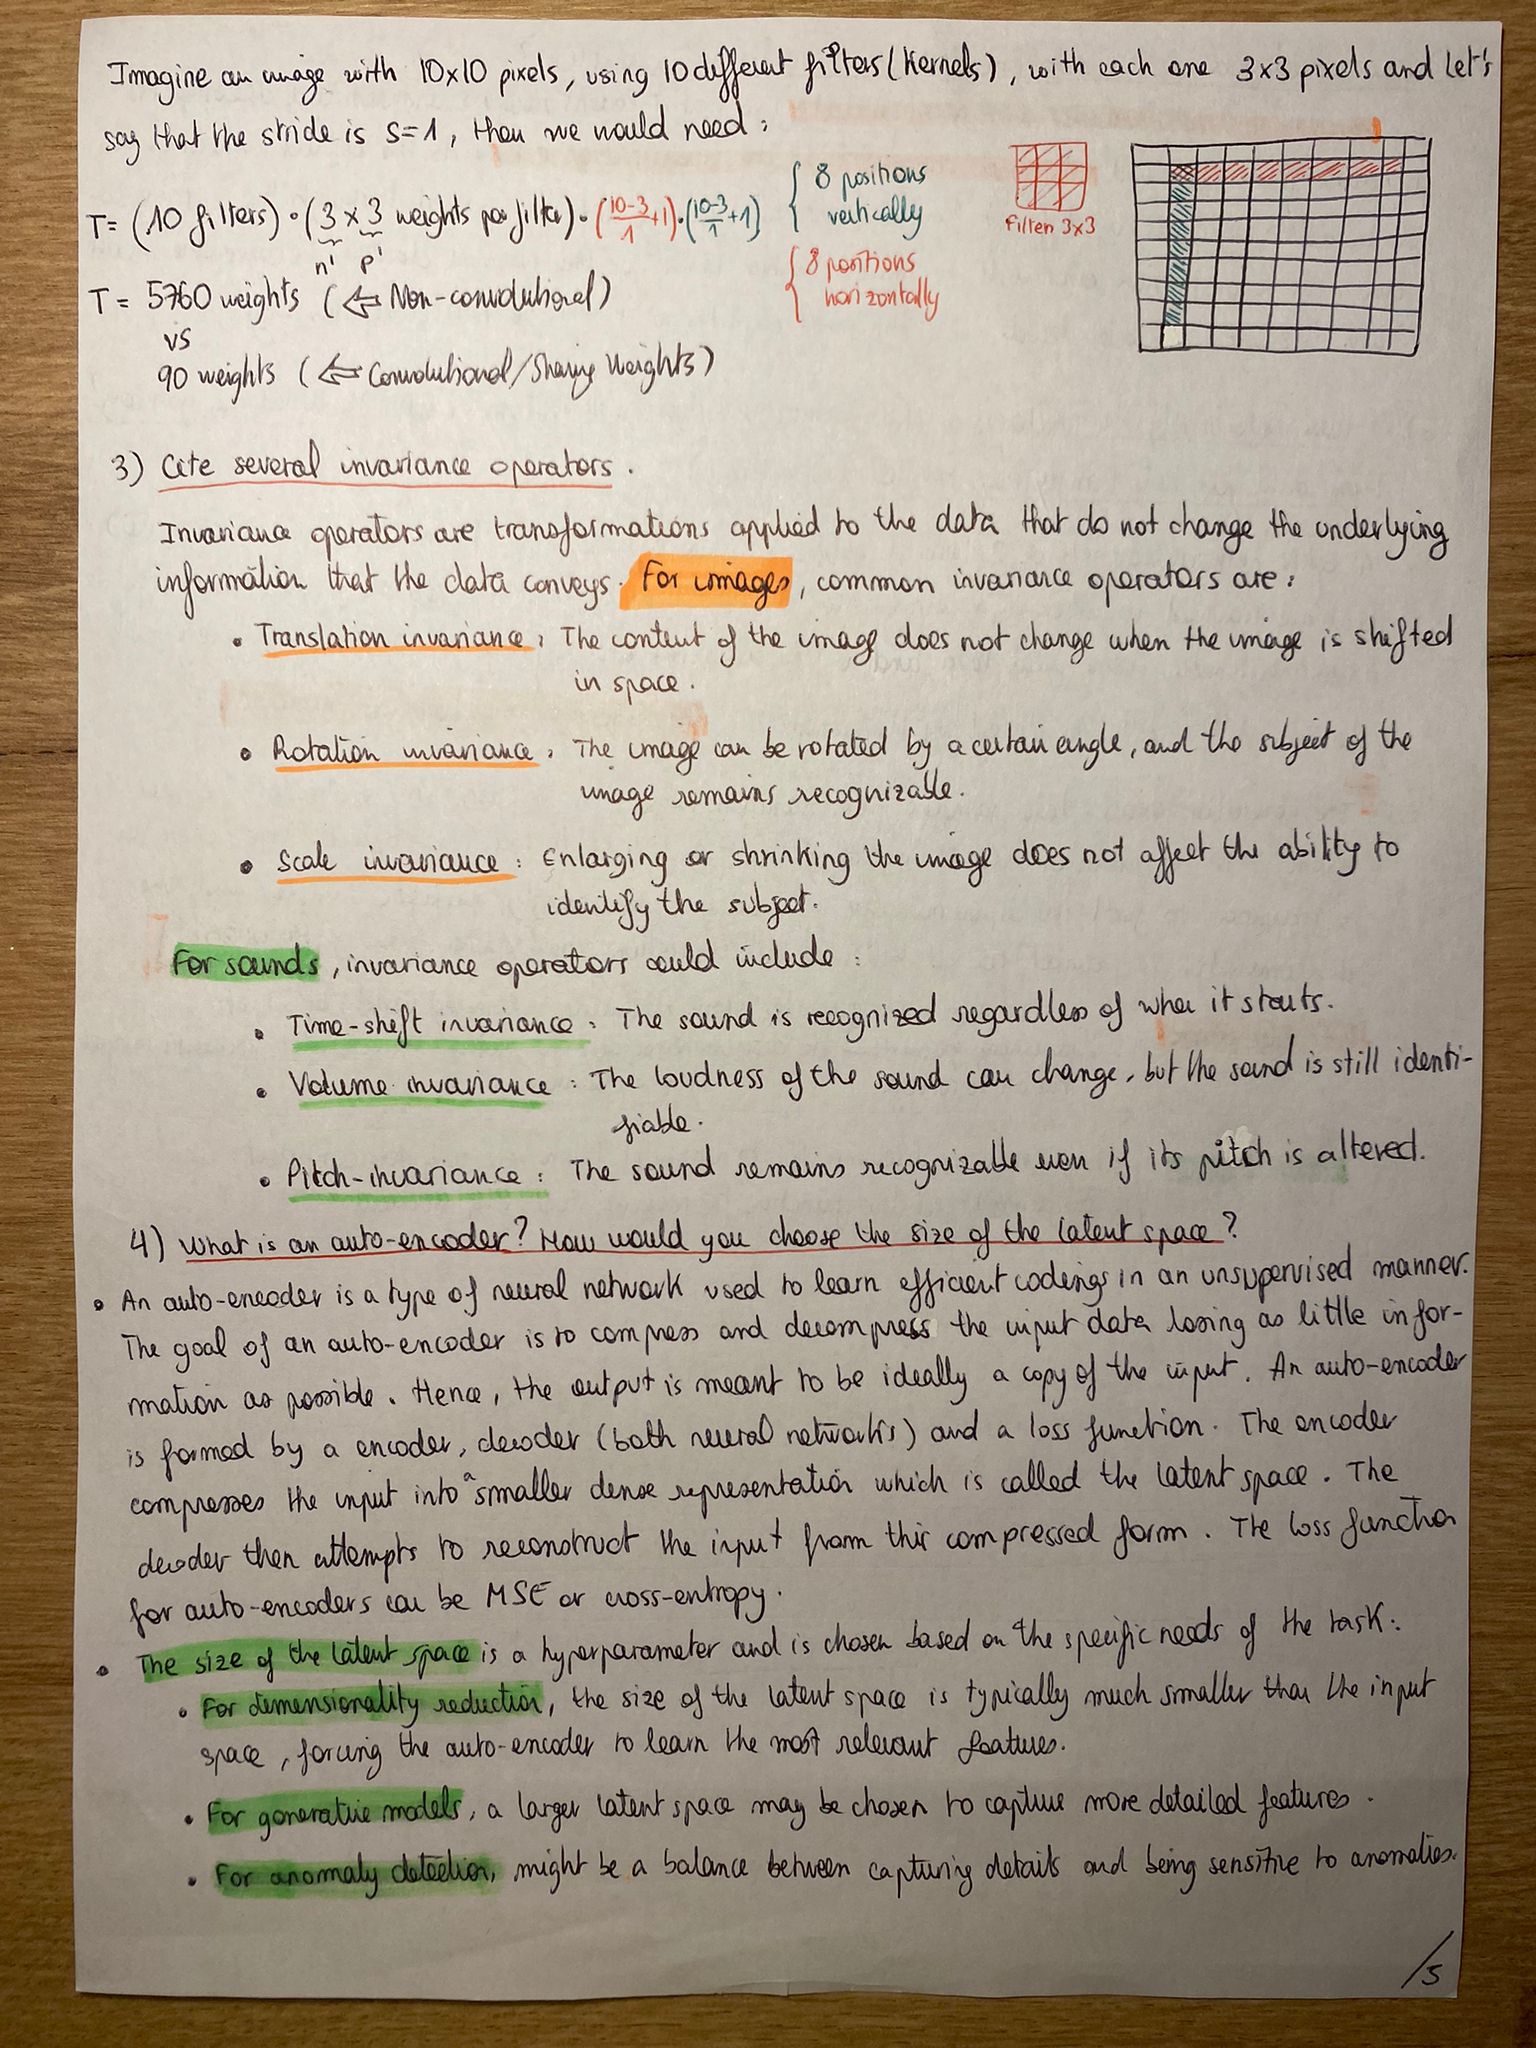 Imagine an image with 10x10 pixels, using 10 different filters (Kernels), with each one 3x3 pixels and let's
say that the stride is S=1, then we would need:
T = (10 filters) • (3 x 3 weights per filter) • (10-3/1 +1) • (10-3/1 +1)
n' p'
{ 8 positions
vertically
{ 8 positions
horizontally
Filter 3x3
T = 5760 weights (⇐ Non-convolutional)
vs
90 weights (⇐ Convolutional/Sharing Weights)
3) Cite several invariance operators.
Invariance operators are transformations applied to the data that do not change the underlying
information that the data conveys. For images, common invariance operators are:
• Translation invariance: The content of the image does not change when the image is shifted
in space.
• Rotation invariance: The image can be rotated by a certain angle, and the subject of the
image remains recognizable.
• Scale invariance: Enlarging or shrinking the image does not affect the ability to
identify the subject.
For sounds, invariance operators could include:
• Time-shift invariance: The sound is recognized regardless of when it starts.
• Volume invariance: The loudness of the sound can change, but the sound is still identi-
fiable.
• Pitch-invariance: The sound remains recognizable even if its pitch is altered.
4) What is an auto-encoder? How would you choose the size of the latent space?
• An auto-encoder is a type of neural network used to learn efficient codings in an unsupervised manner.
The goal of an auto-encoder is to compress and decompress the input data losing as little infor-
mation as possible. Hence, the output is meant to be ideally a copy of the input. An auto-encoder
is formed by a encoder, decoder (both neural networks) and a loss function. The encoder
compresses the input into a smaller dense representation which is called the latent space. The
decoder then attempts to reconstruct the input from this compressed form. The loss function
for auto-encoders can be MSE or cross-entropy.
• The size of the latent space is a hyperparameter and is chosen based on the specific needs of the task:
• For demensionality reduction, the size of the latent space is typically much smaller than the input
space, forcing the auto-encoder to learn the most relevant features.
• For generative models, a larger latent space may be chosen to capture more detailed features.
• For anomaly detection, might be a balance between capturing details and being sensitive to anomalies.
/5